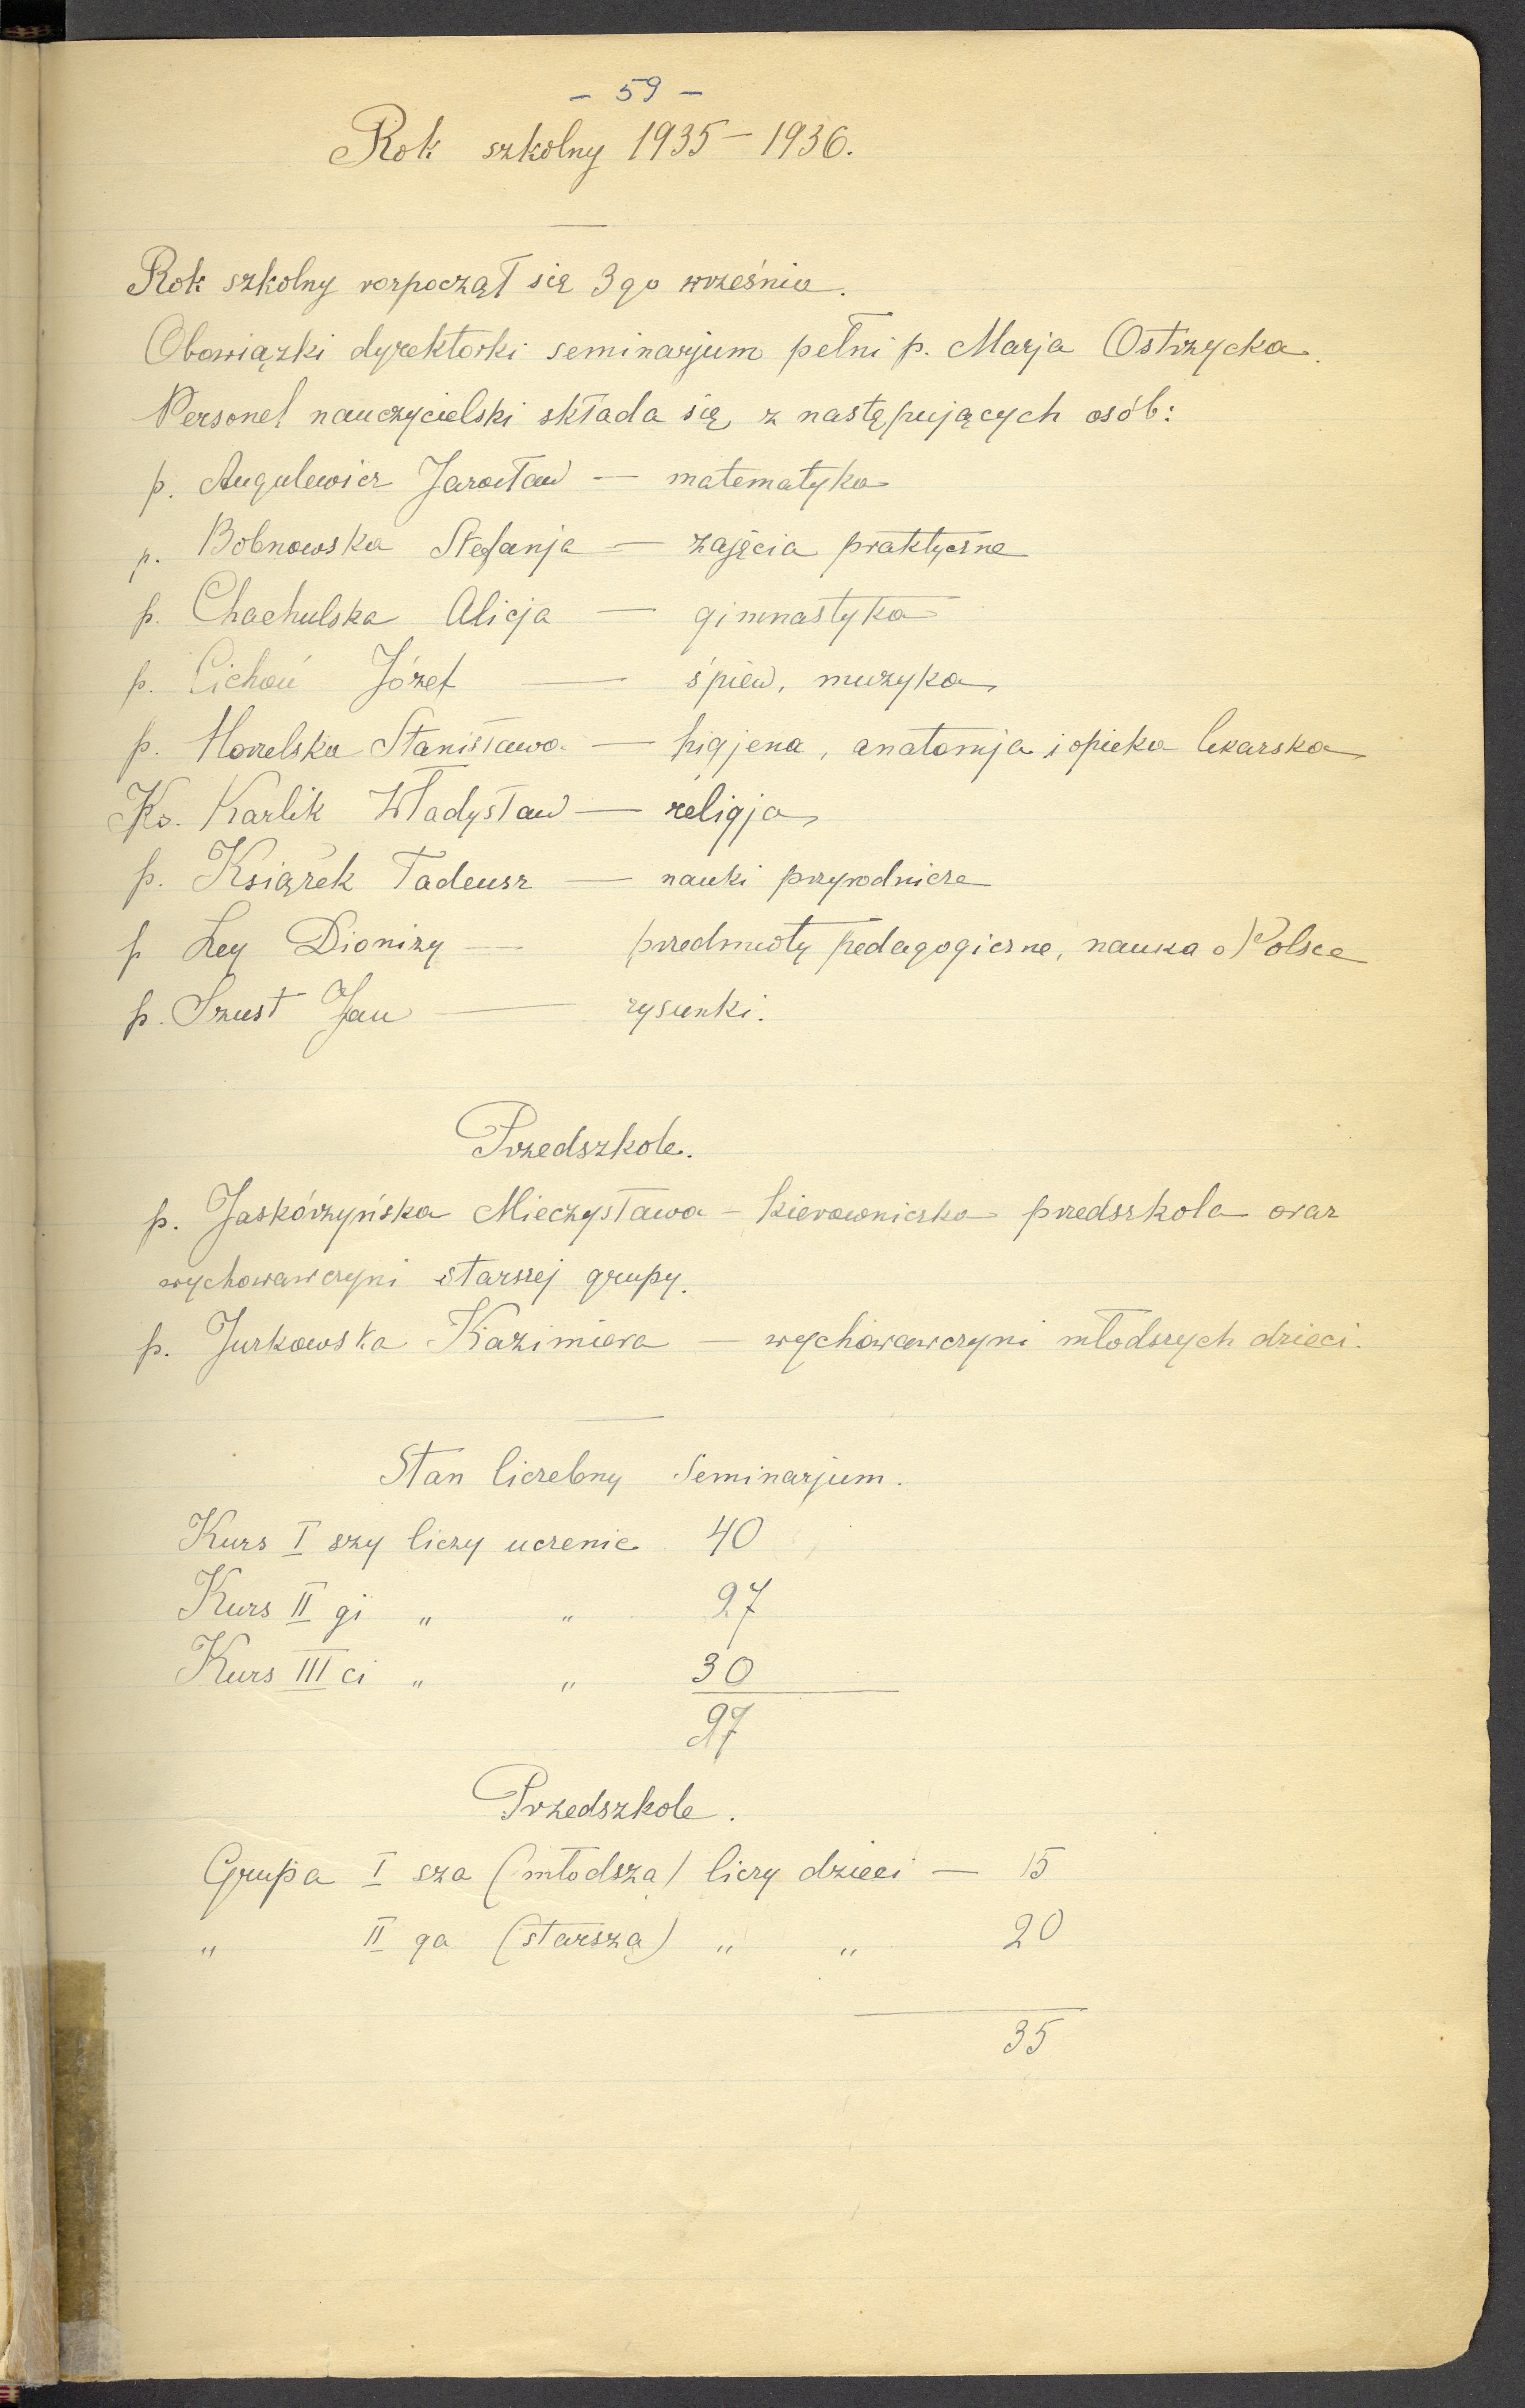 - 59 -
Rok szkolny 1935 - 1936.
Rok szkolny rozpoczął się 3go września.
Obowiązki dyrektorki seminarjum pełni p. Marja Ostrzycka.
Personel nauczycielski składa się z następujących osób:
p. Augulewicz Jarosław — matematyka
p. Bobnowska Stefanja — zajęcia praktyczne
p. Chachulska Alicja — gimnastyka
p. Cichoń Józef — śpiew, muzyka
p. Stanisława — higjena, anatomja i opieka lekarska
Ks. Karlik Władysław — religja
p. Książek Tadeusz — nauki przyrodnicze
p Ley Dionizy — przedmioty pedagogiczne, nauka o Polsce
p. Szust Jan — rysunki.
Przedszkole.
p. Jaskórzyńska Mieczysława - kierowniczka przedszkola oraz
wychowawczyni starszej grupy.
p. Jurkowska Kazimiera — wychowawczyni młodszych dzieci.
Stan liczebny Seminarjum.
Kurs I szy liczy uczenic 40
Kurs II gi " " 27
Kurs III ci " " 30
97
Przedszkole.
Grupa I sza (młodsza) liczy dzieci — 15
" II ga (starsza) " " 20
35